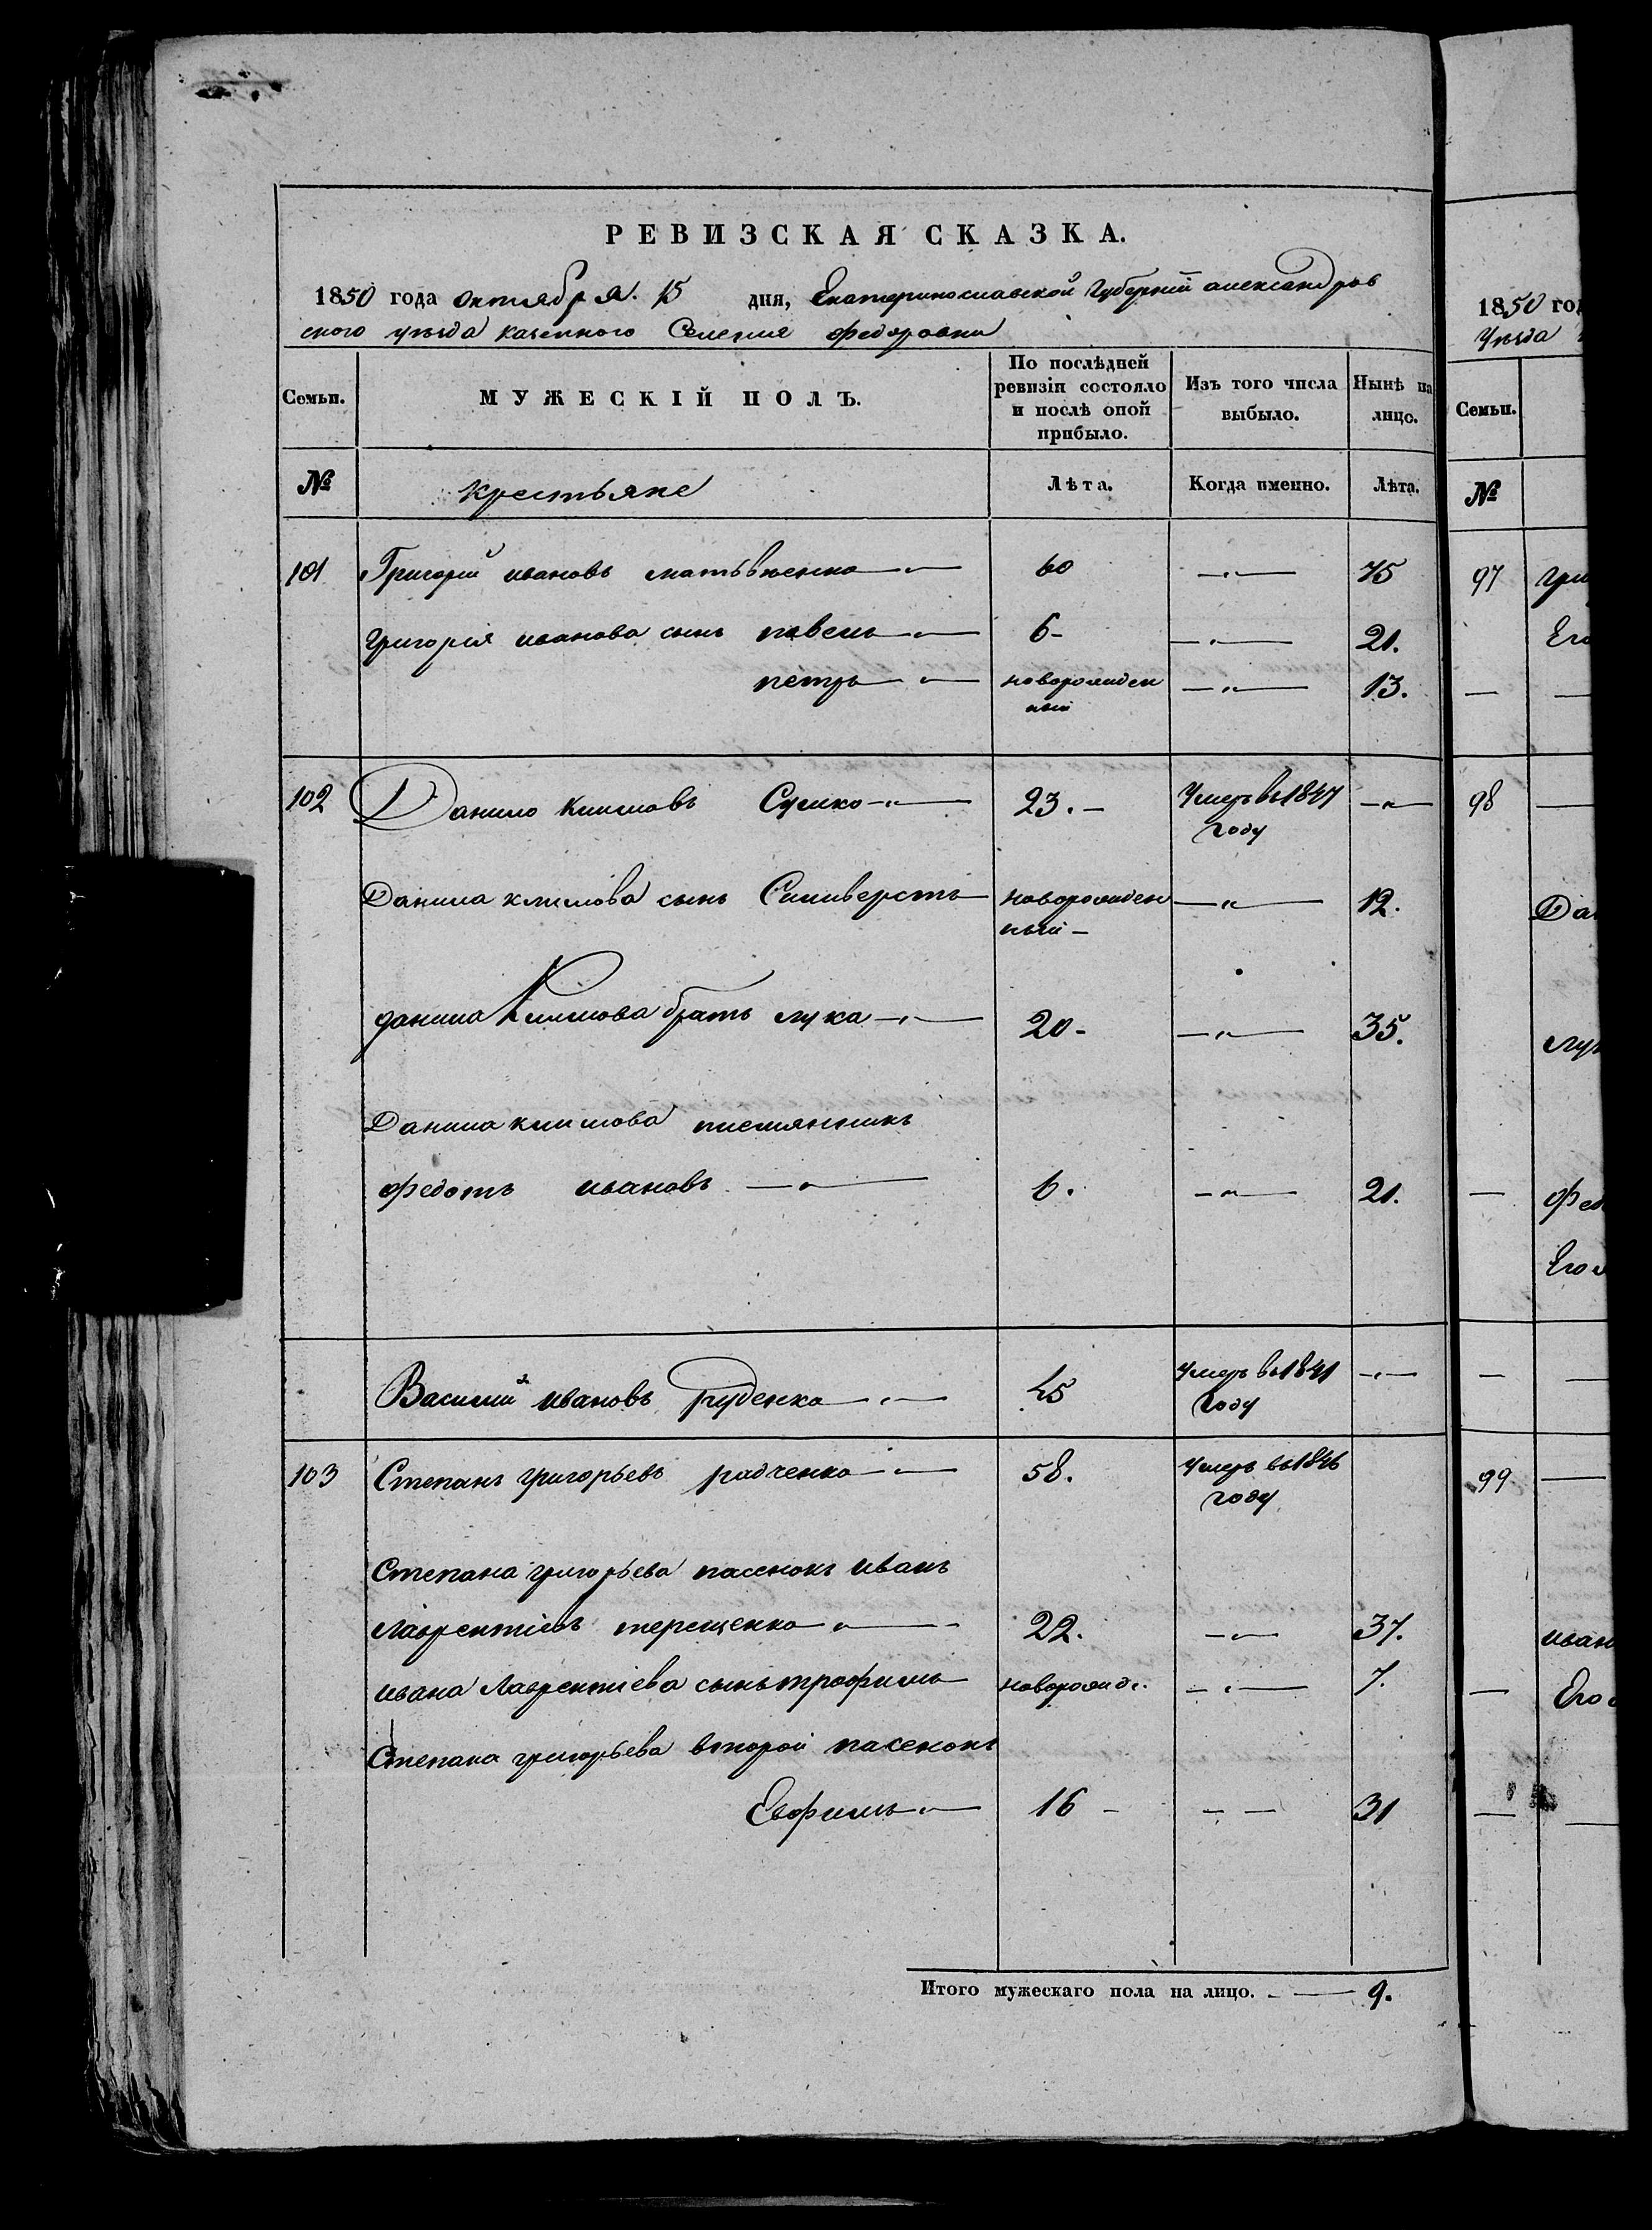 РЕВИЗСКАЯ СКАЗКА.
1850 года октября 15 дня, Екатеринославской Губерній александров
ского уѣзда казенного Селения Федоровки
Семьи.
МУЖЕСКІЙ ПОЛЪ.
По послѣдней
ревизіи состояло
и послѣ оной
прибыло.
Изъ того числа
выбыло.
Нынѣ на
лицо.
№ крестьяне Лѣта. Когда именно. Лѣта.
101 Григорий ивановъ матьвѣенко 60 —"— 75
Григорія иванова сынъ павелъ 6 —"— 21.
петръ новорожден —"— 13.
ный
102 Данило климовъ Сушко 23. Умеръ въ 1847 —"—
году
Данила климова сынъ Силиверстъ новорожден —"— 12.
ный
данила Климова братъ лука 20 —"— 35.
Данила климова племянникъ
федотъ ивановъ —"— 6. —"— 21.
Василий ивановъ Руденко 45 Умеръ въ 1841 —"—
году
103 Степанъ григорьевъ радченко 58. Умеръ въ 1846
году
Степана григорьева пасенокъ иванъ
лаврентіевъ терещенко 22. —"— 37.
ивана Лаврентіева сынъ трофимъ новорожд. —"— 7.
Степана григорьева второй пасенокъ
Евфимъ 16 — — 31
Итого мужескаго пола на лицо. — 9.
1850 го
Уѣзда
Семьи.
№
97 Гри
Его
98
Да
лук
Фед
Его
99
иван
Его